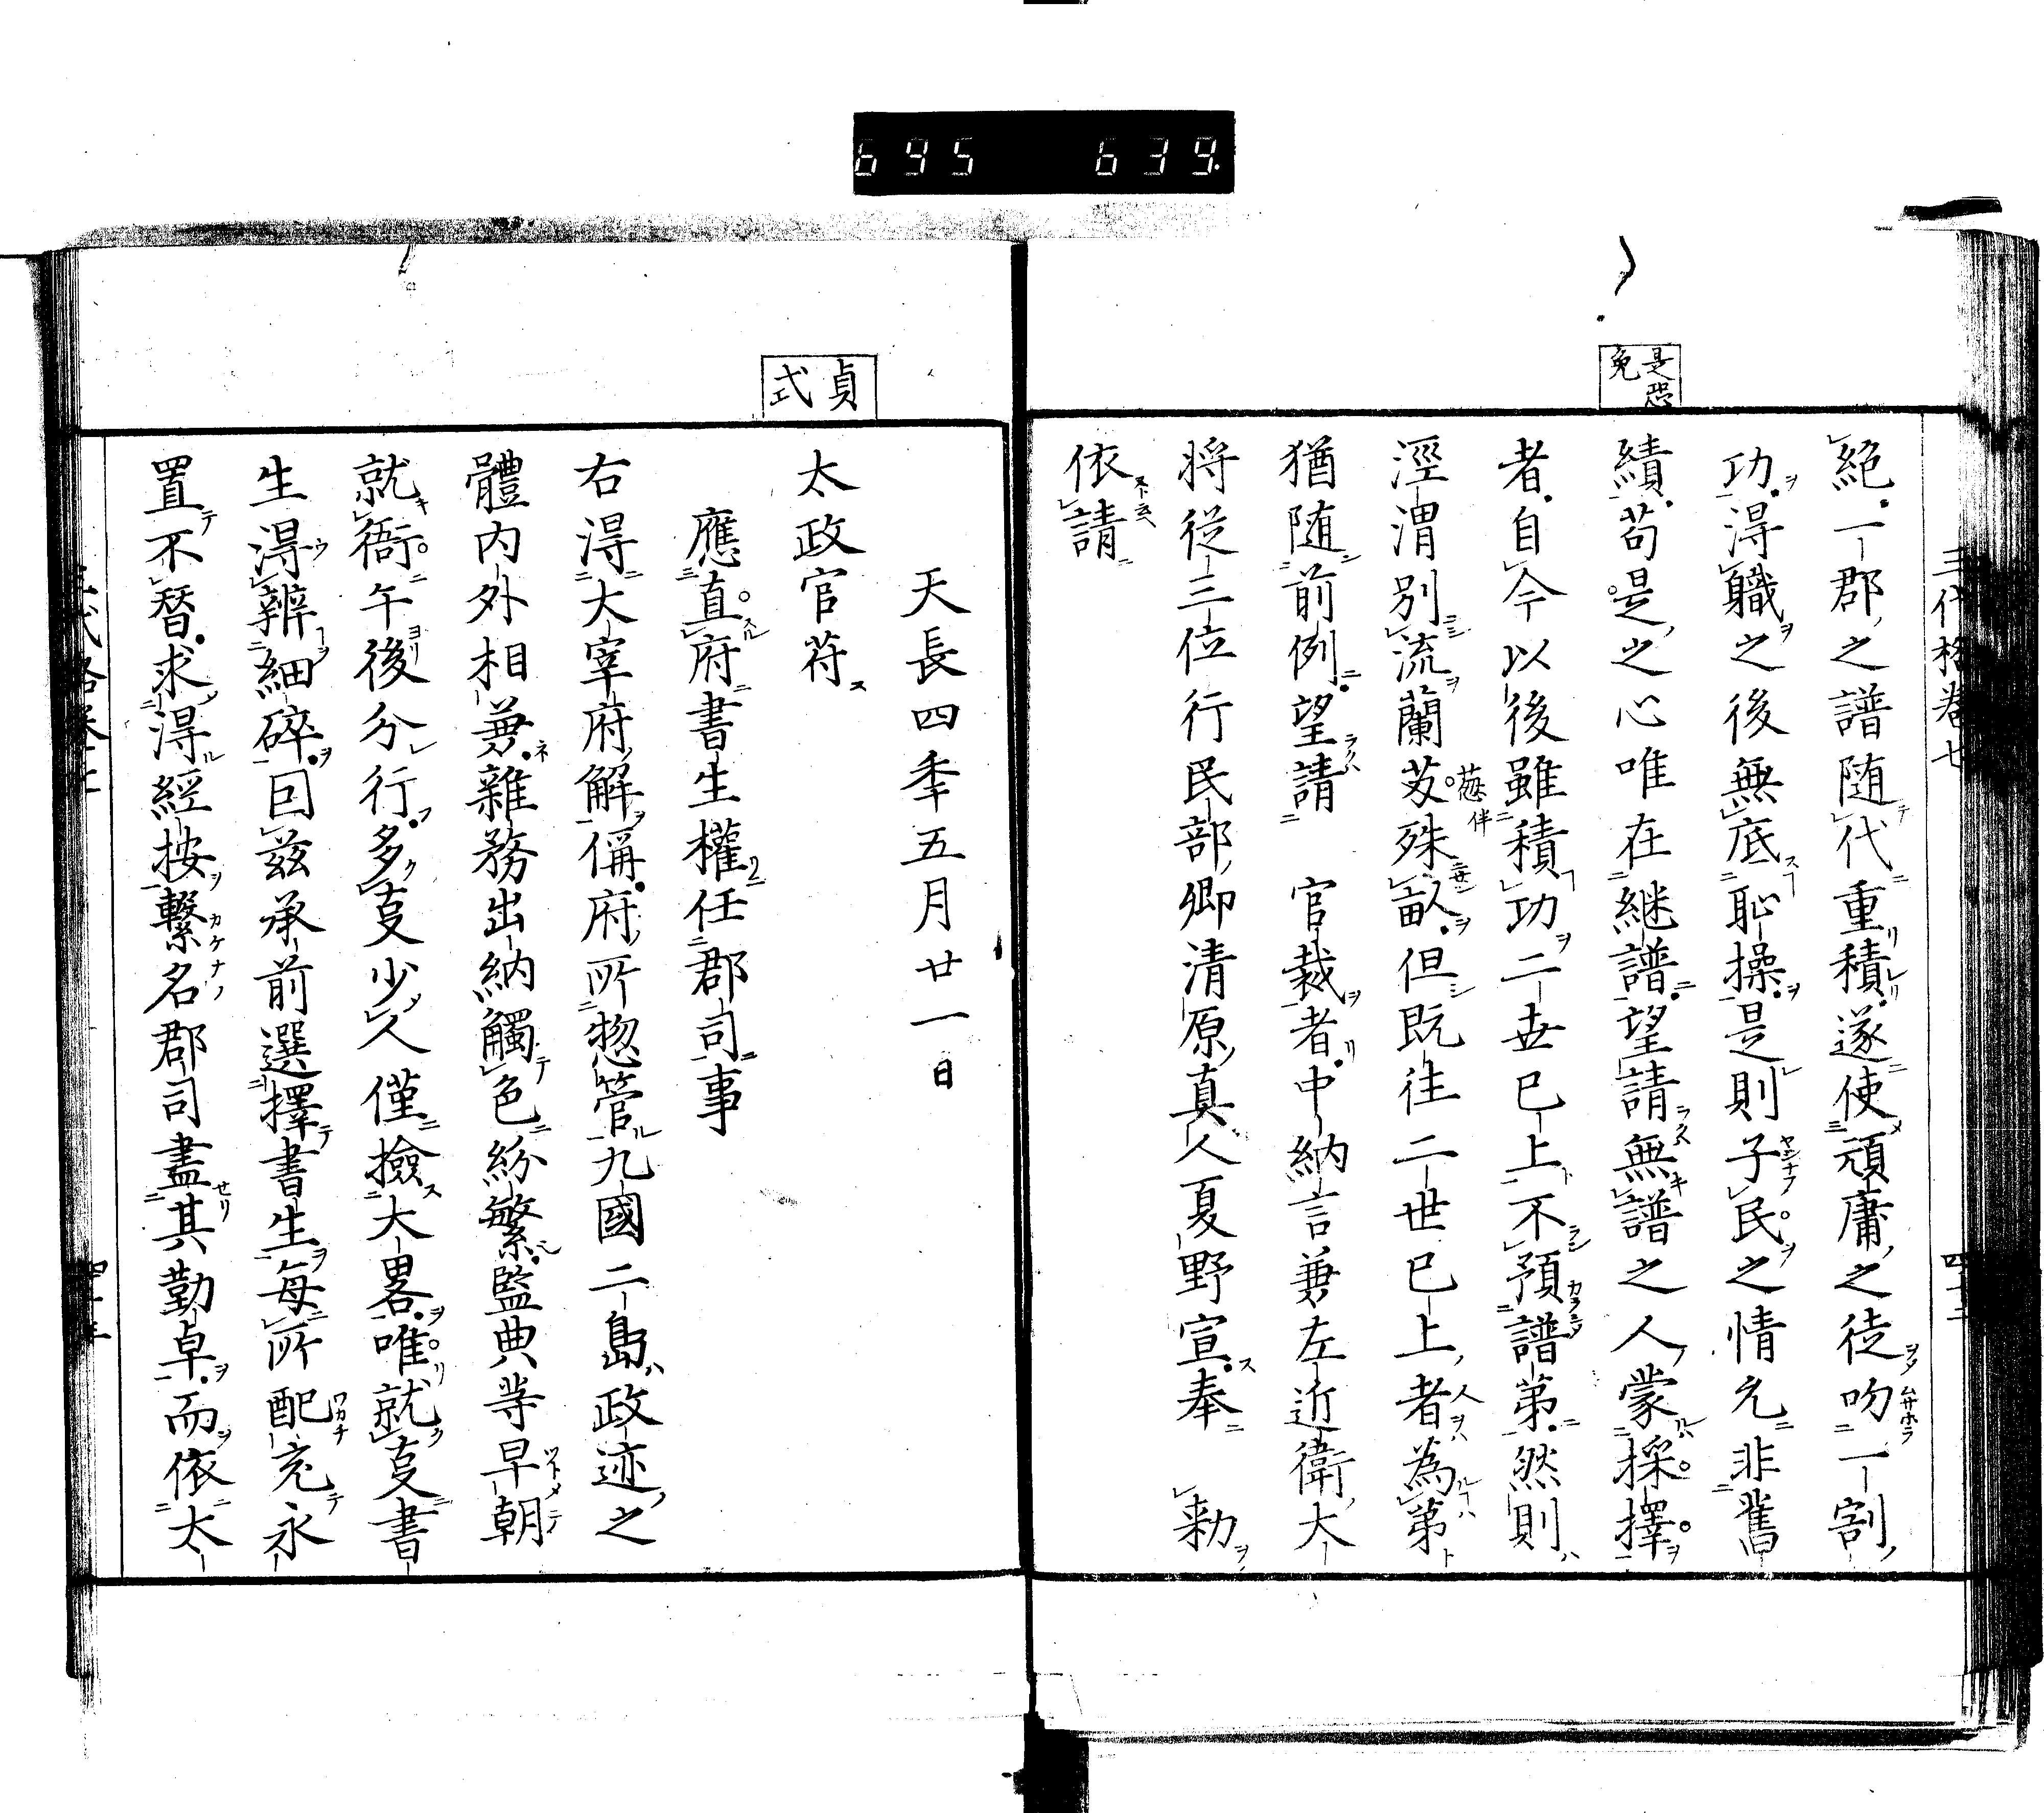 695 639.
三代格卷七
四十二
是恐
免
絕一郡之譜随代重積遂使頑庸之徒吻一割
功淂職之後無底恥操是則子民之情允非舊
績苟是之心唯在継譜望請無譜之人蒙採擇
者自今以後雖積功二世已上不預譜第然則
涇渭別流蘭艾殊畝但既往二世已上者為第
猶随前例望請 官裁者中納言兼左近衛大
将従三位行民部卿清原真人夏野宣奉 勅
依請
天長四季五月廿一日
貞
式
太政官符
應直府書生權任郡司事
右淂大宰府解偁府所惣管九國二島政迹之
體内外相兼雜務出納觸色紛繁監典等早朝
就衙午後分行多㕝少人僅撿大畧唯就㕝書
生淂辨細碎因茲承前選擇書生每所配充永
置不替求淂經按繋名郡司盡其勤卓而依大